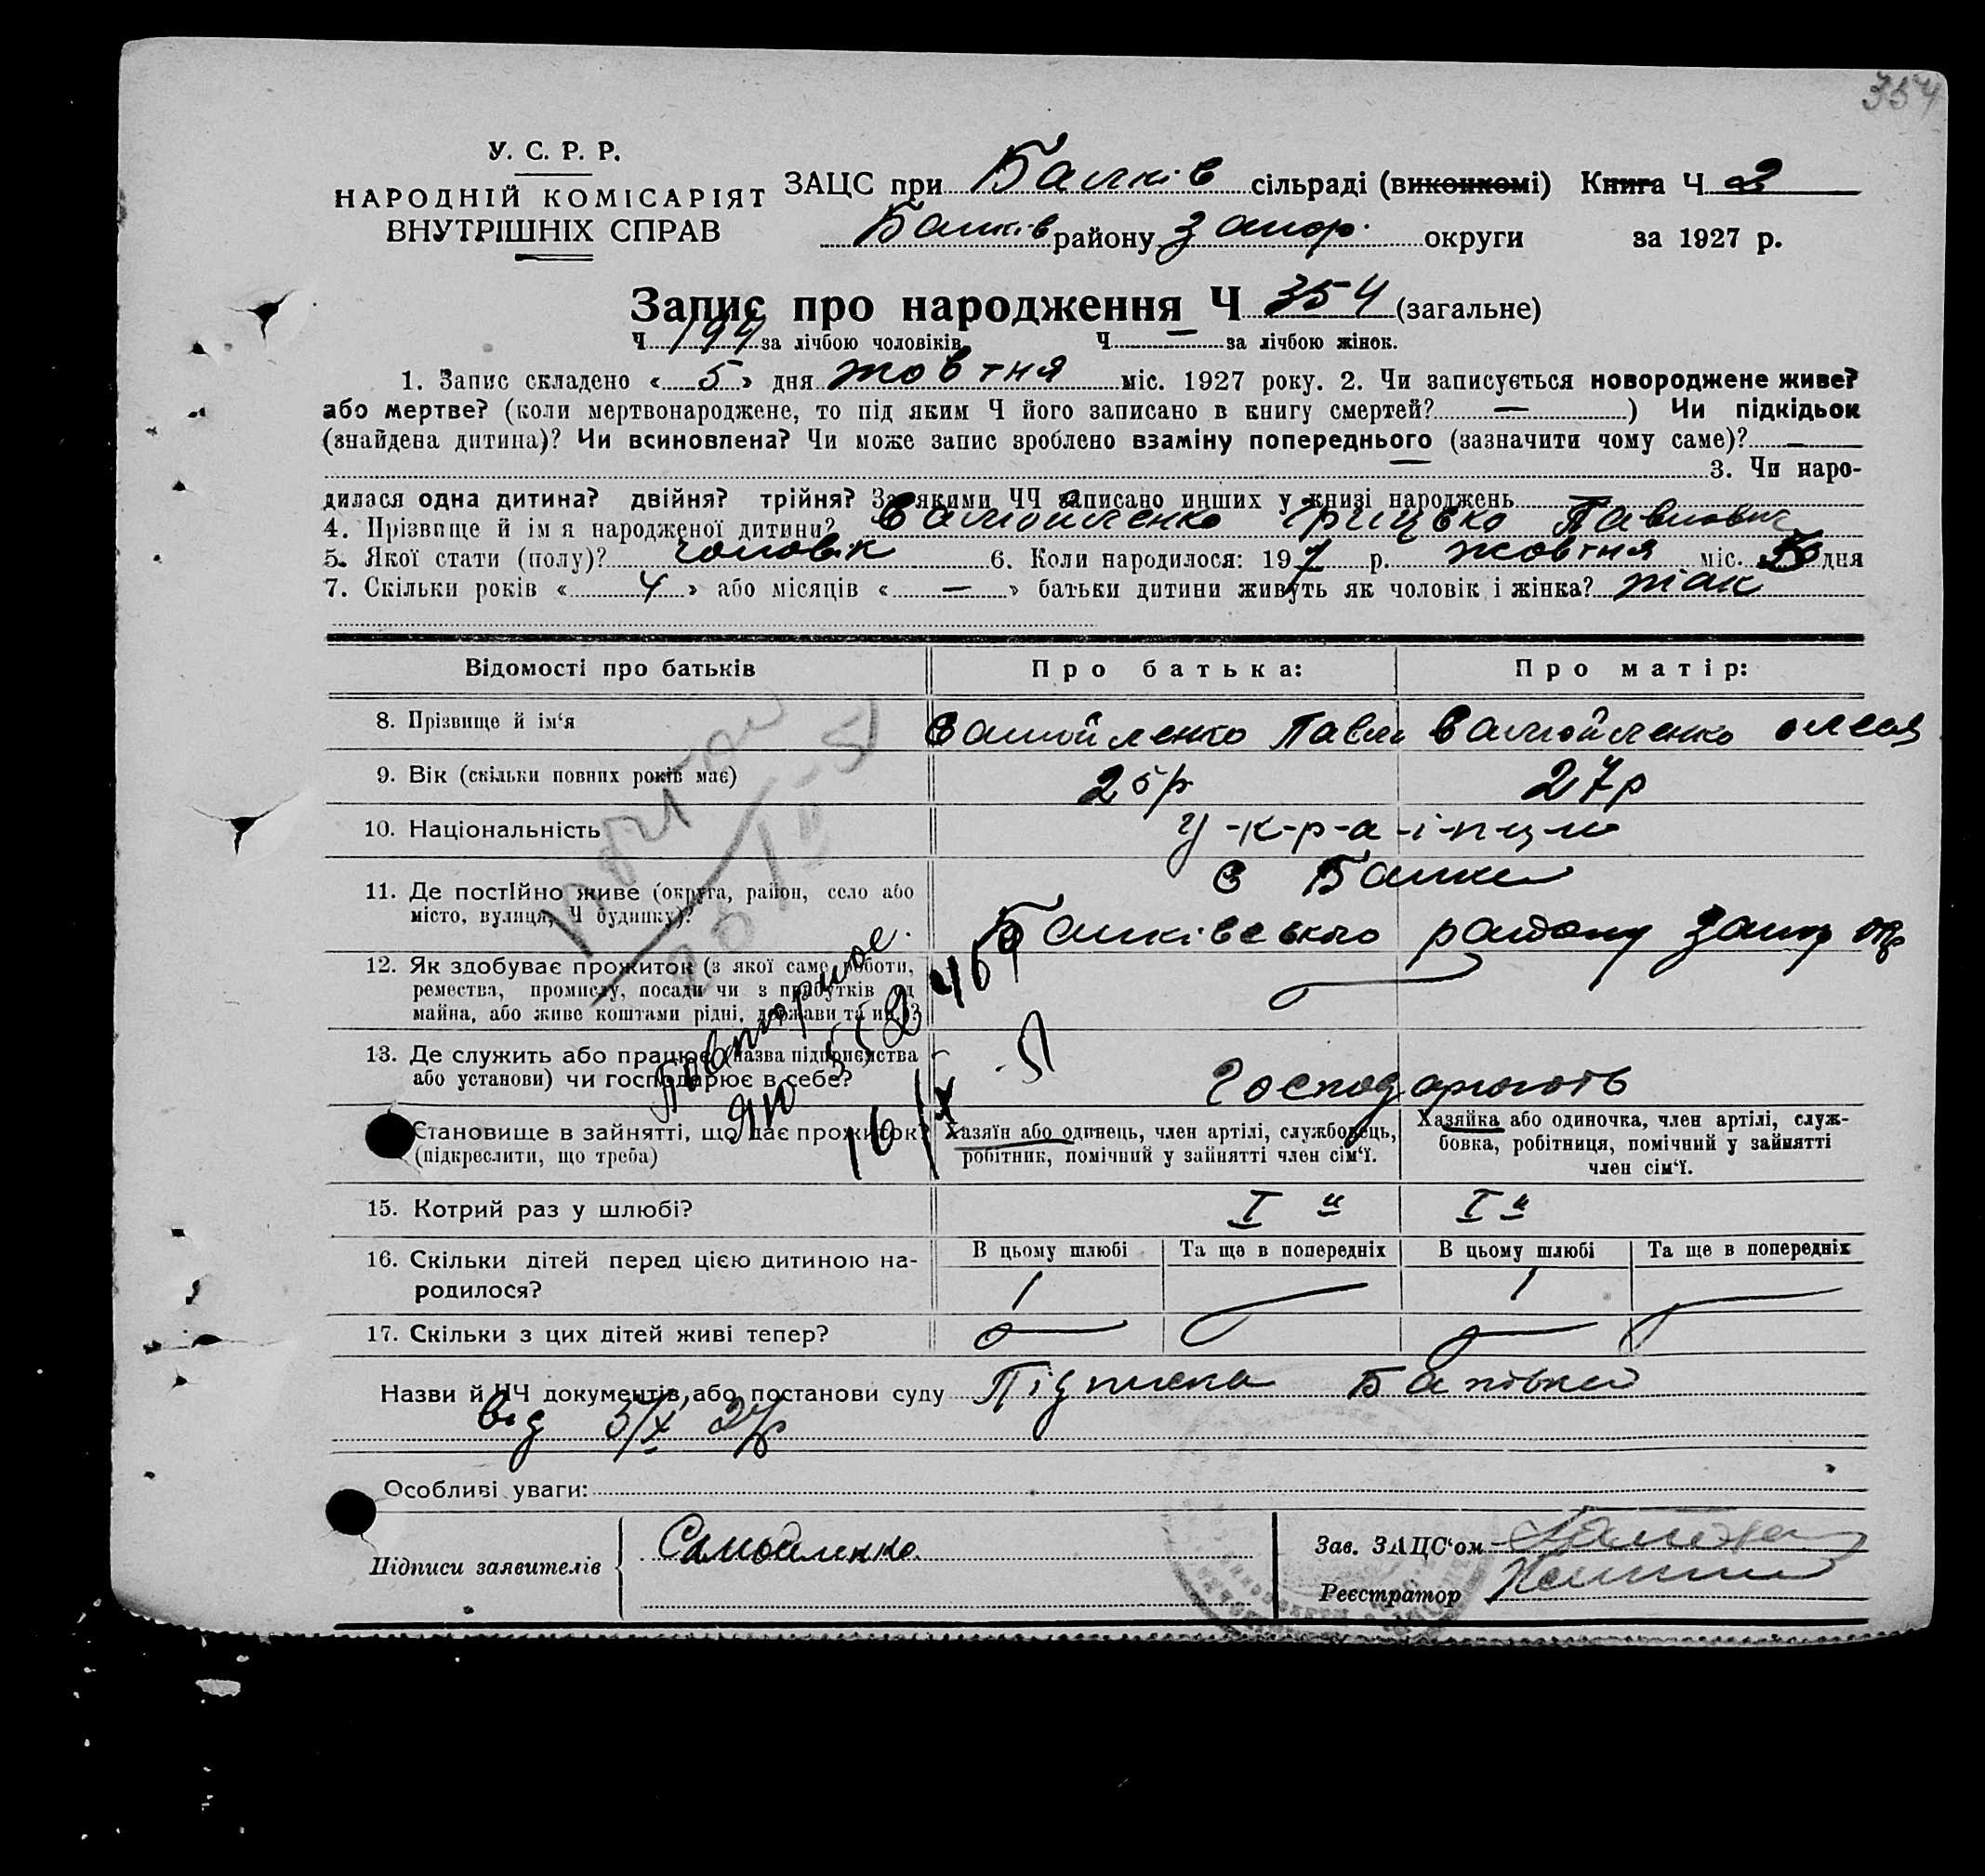 354
У. С. Р. Р.
НАРОДНІЙ КОМІСАРІЯТ
ВНУТРІШНІХ СПРАВ
ЗАЦС при Балків сільраді (виконкомі) Книга Ч 2
Балків району Запор. округи за 1927 р.
Запис про народження Ч 354 (загальне)
Ч 194 за лічбою чоловіків Ч — за лічбою жінок.
1. Запис складено « 5 » дня жовтня міс. 1927 року. 2. Чи записується новороджене живе?
або мертве? (коли мертвонароджене, то під яким Ч його записано в книгу смертей? — ) Чи підкідьок
(знайдена дитина)? Чи всиновлена? Чи може запис зроблено взаміну попереднього (зазначити чому саме)? —
— 3. Чи наро-
дилася одна дитина? двійня? трійня? За якими ЧЧ записано инших у книзі народжень —
4. Прізвище й ім я народженої дитини? Самойленко Грицько Павлович
5. Якої стати (полу)? чоловік 6. Коли народилося: 197 р. жовтня міс. дня
7. Скільки років « 4 » або місяців « — » батьки дитини живуть як чоловік і жінка? так
Відомості про батьків Про батька: Про матір:
8. Прізвище й ім‘я Самойленко Павло Самойленко Олеся
9. Вік (скільки повних років має) 25р 27р
10. Національність У-к-р-а-ї-н-ц-и
11. Де постійно живе (округа, район, село або
місто, вулиця, Ч будинку)?
с Балки
Балківського району Запор окр
12. Як здобуває прожиток (з якої саме роботи,
ремества, промислу, посади чи з прибутків од
майна, або живе коштами рідні, держави та ин.)?
13. Де служить або працює (назва підприємства
або установи) чи господарює в себе?
Господарюють
Становище в зайнятті, що дає прожиток?
(підкреслити, що треба)
Хазяїн або одинець, член артілі, службовець,
робітник, помічний у зайнятті член сім‘ї.
Хазяйка або одиночка, член артілі, служ-
бовка, робітниця, помічний у зайнятті
член сім‘ї.
Повторное
16/X - 51
15. Котрий раз у шлюбі? I й I й
16. Скільки дітей перед цією дитиною на-
родилося?
В цьому шлюбі Та ще в попередніх В цьому шлюбі Та ще в попередніх
1 — 1 —
17. Скільки з цих дітей живі тепер? — — — —
Назви й ЧЧ документів, або постанови суду Підписка Батьків
від 5/X 27р
Особливі уваги:
Підписи заявителів Самойленко
Зав. ЗАЦС‘ом
Реєстратор